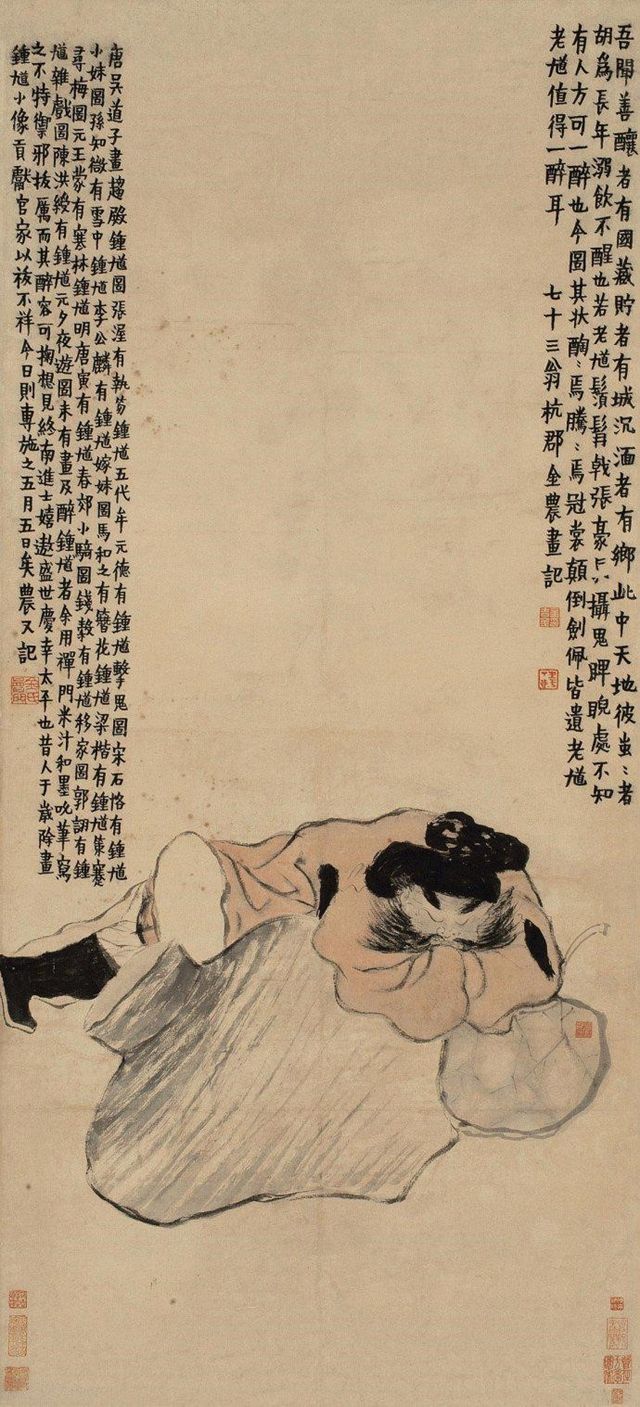 吾聞善釀者有國藏貯者有城沉湎者有鄉此中天地彼蚩〻者
胡為長年溺飲不醒也若老馗鬚髯戟張豪攝鬼睥睨處不知
有人方可一醉也今圖其狀焉騰〻焉冠裳顛倒劍佩皆遺老馗
老馗值得一醉耳 七十三翁杭郡金農畫記
唐吳道子畫趨殿鍾馗圖張渥有執笏鍾馗五代牟元德有鍾馗擊鬼圖宋石恪有鍾馗
小妹圖孫知微有雪中鍾馗李公麟有鍾馗嫁妹圖馬和之有簪花鍾馗梁楷有鍾馗策蹇
尋梅圖元王蒙有寒林鍾馗明唐寅有鍾馗春郊小騎圖錢榖有鍾馗移家圖郭詡有鍾
馗雜戲圖陳洪綬有鍾馗元夕夜遊圖未有畫及醉鍾馗者余用禪門米汁和墨吮筆寫
之不特禦邪拔厲而其醉容可掬想見終南進士嬉遨盛世慶幸太平也昔人于歲除畫
鍾馗小像貢獻官家以祓不祥今日則專施之五月五日矣農又記